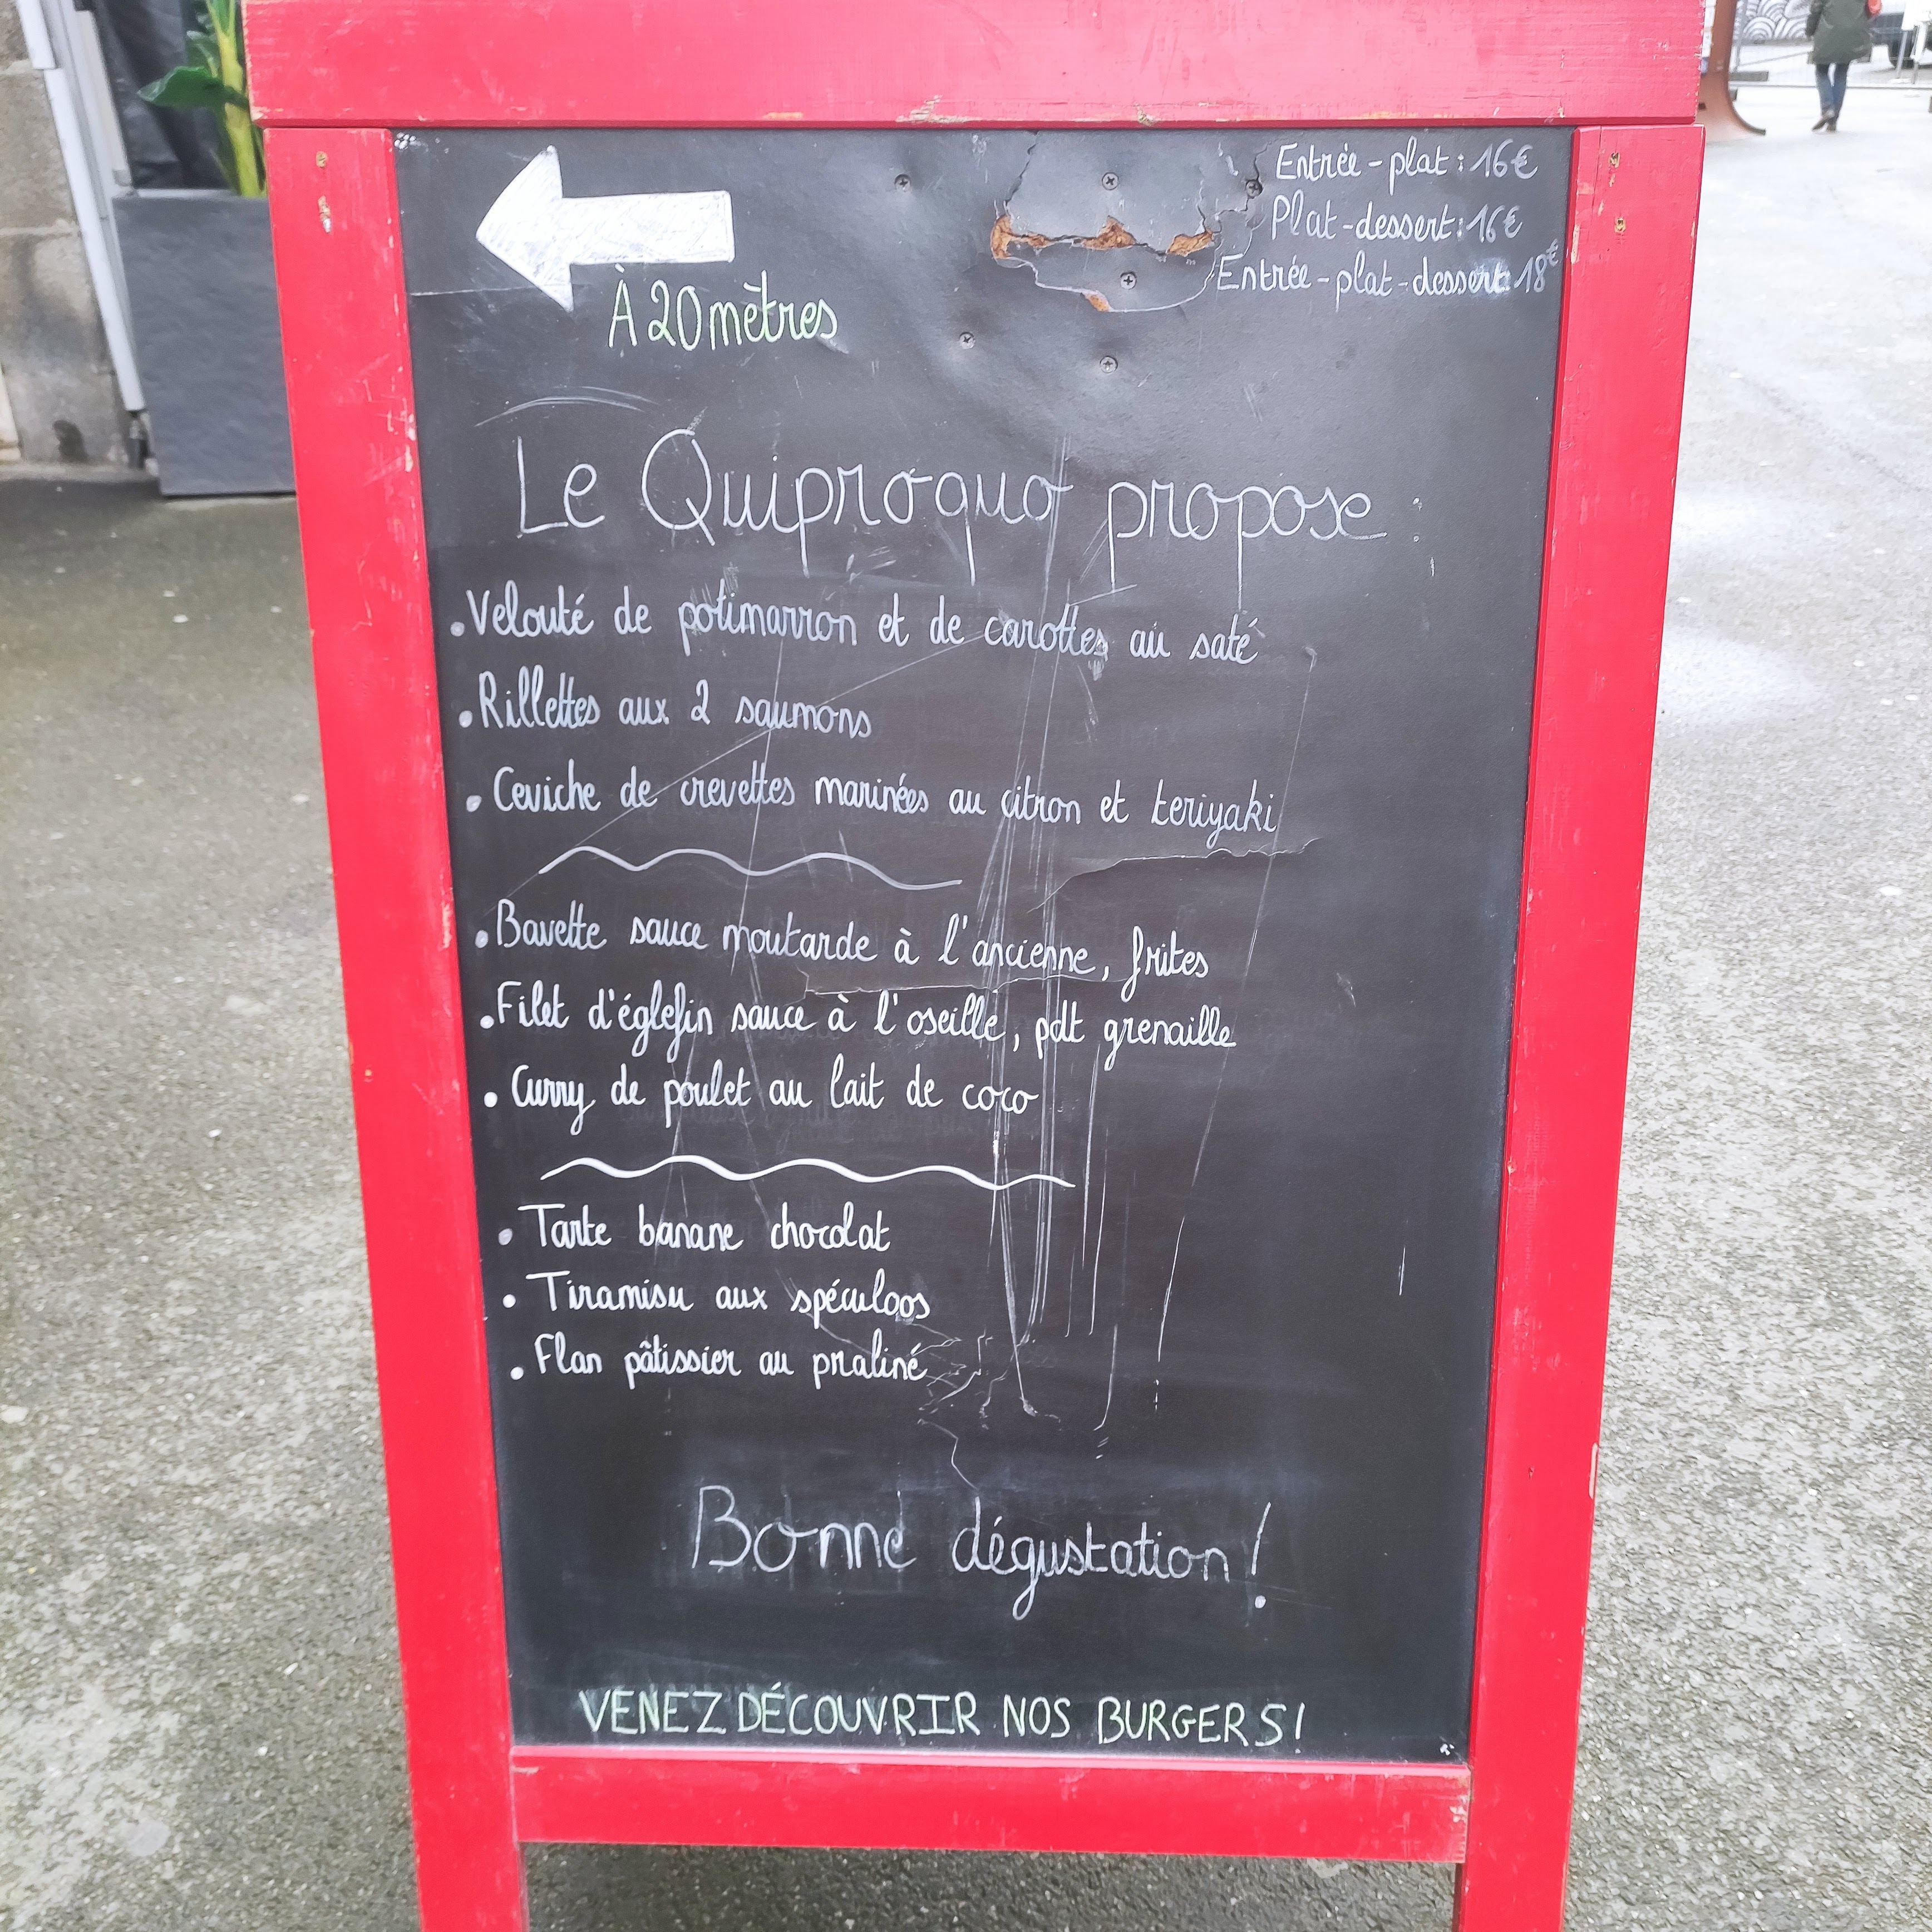 Entrée-plat : 16€
Plat-dessert : 16€
Entrée-plat-dessert : 18€
À 20 mètres
Le Quiproquo propose :
• Velouté de potimarron et de carottes au saté
• Rillettes aux 2 saumons
• Ceviche de crevettes marinées au citron et teriyaki
• Bavette sauce moutarde à l'ancienne, frites
• Filet d'églefin sauce à l'oseille, pdt grenaille
• Curry de poulet au lait de coco
• Tarte banane chocolat
• Tiramisu aux spéculoos
• Flan pâtissier au praliné
Bonne dégustation !
VENEZ DÉCOUVRIR NOS BURGERS !